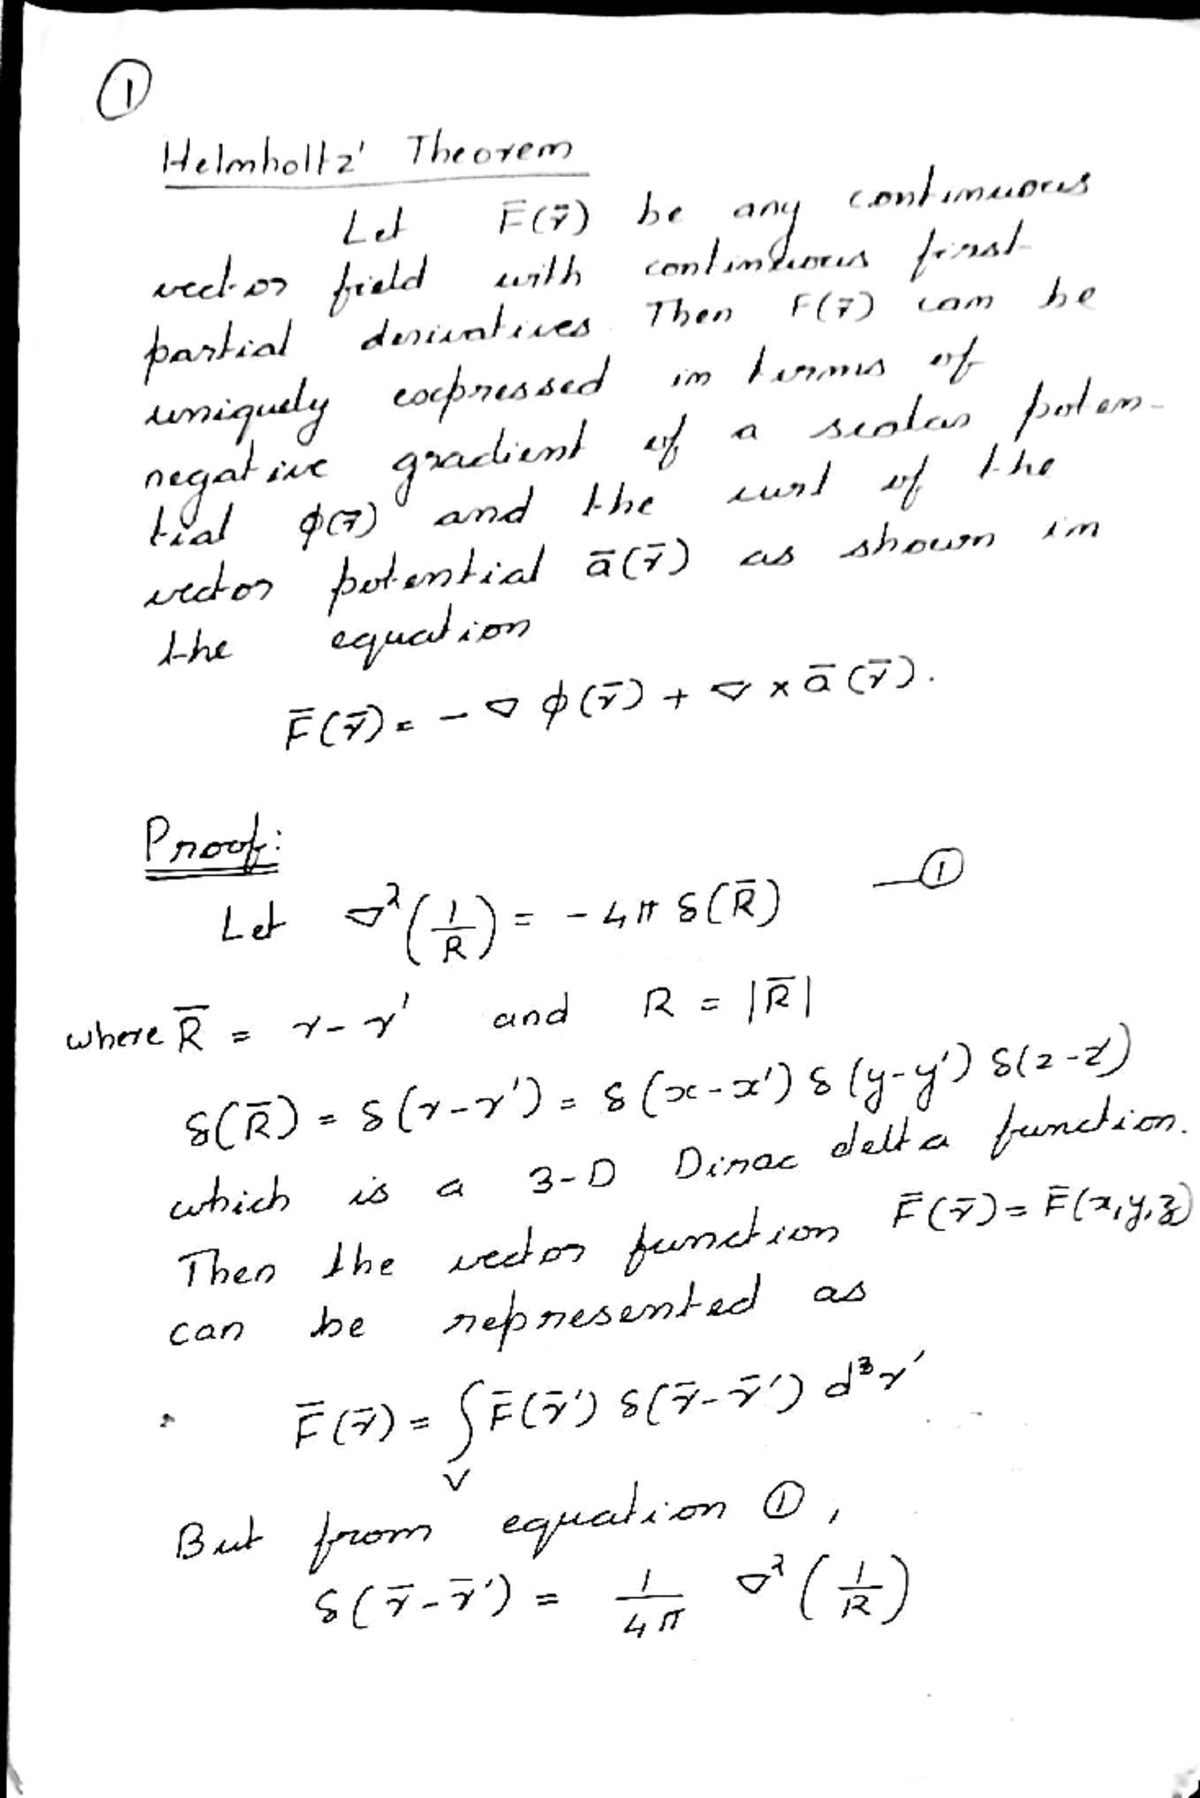 ①
Helmholtz' Theorem
Let F̄(r̄) be any continuous
vector field with continuous first
partial derivatives. Then F(r̄) can be
uniquely expressed in terms of
negative gradient of a scalar poten-
tial φ(r̄) and the curl of the
vector potential ā(r̄) as shown in
the equation
F̄(r̄) = -∇φ(r̄) + ∇ × ā(r̄).
Proof:
Let ∇²(1/R) = -4π δ(R̄) —①
where R̄ = r-r' and R = |R̄|
δ(R̄) = δ(r-r') = δ(x-x') δ(y-y') δ(z-z')
which is a 3-D Dirac delta function.
Then the vector function F̄(r̄) = F̄(x,y,z)
can be represented as
F̄(r̄) = ∫_V F̄(r̄') δ(r̄-r̄') d³r'
But from equation ①,
δ(r̄-r̄') = 1/4π ∇²(1/R)